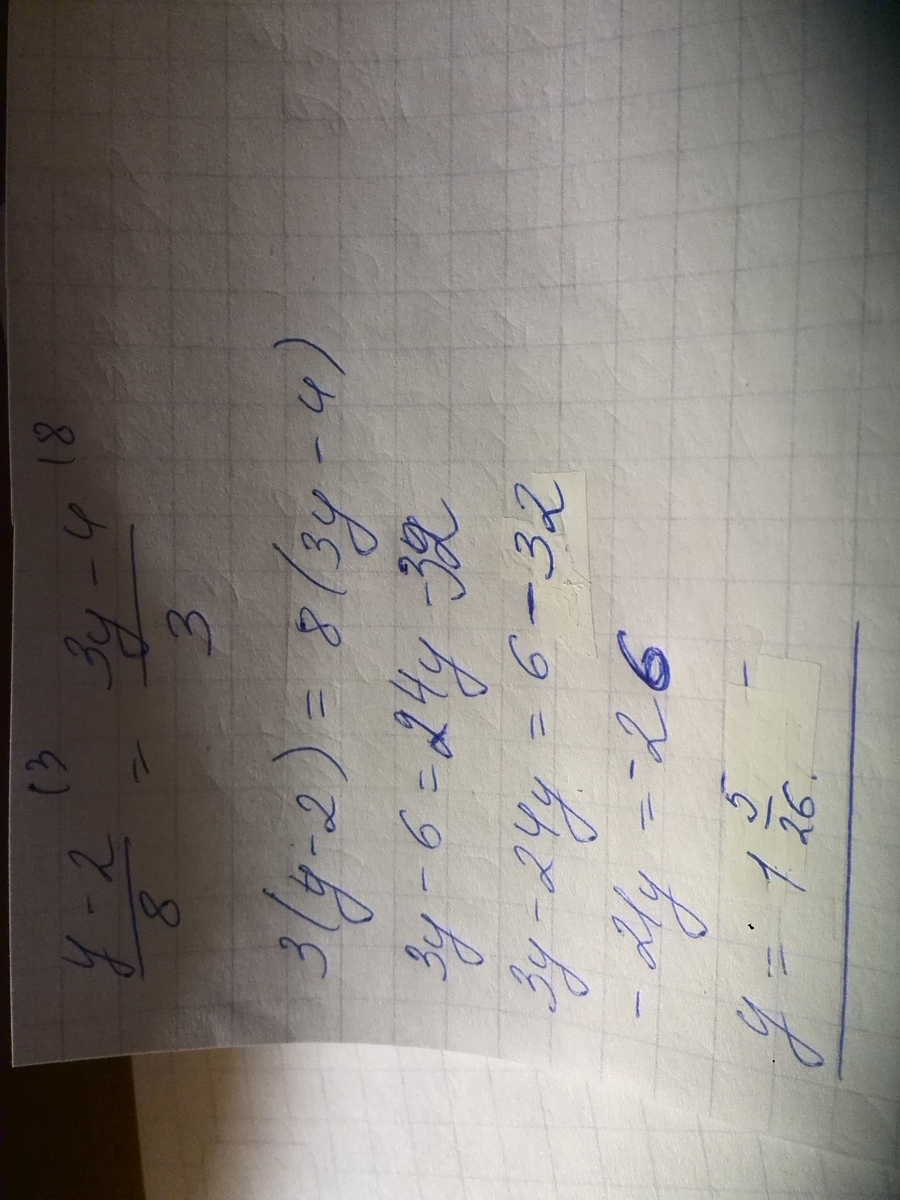 y - 2 (3 = 3y - 4 (8
8 3
3(y-2) = 8(3y - 4)
3y - 6 = 24y - 32
3y - 24y = 6 - 32
- 21y = -26
y = 1 5/26.